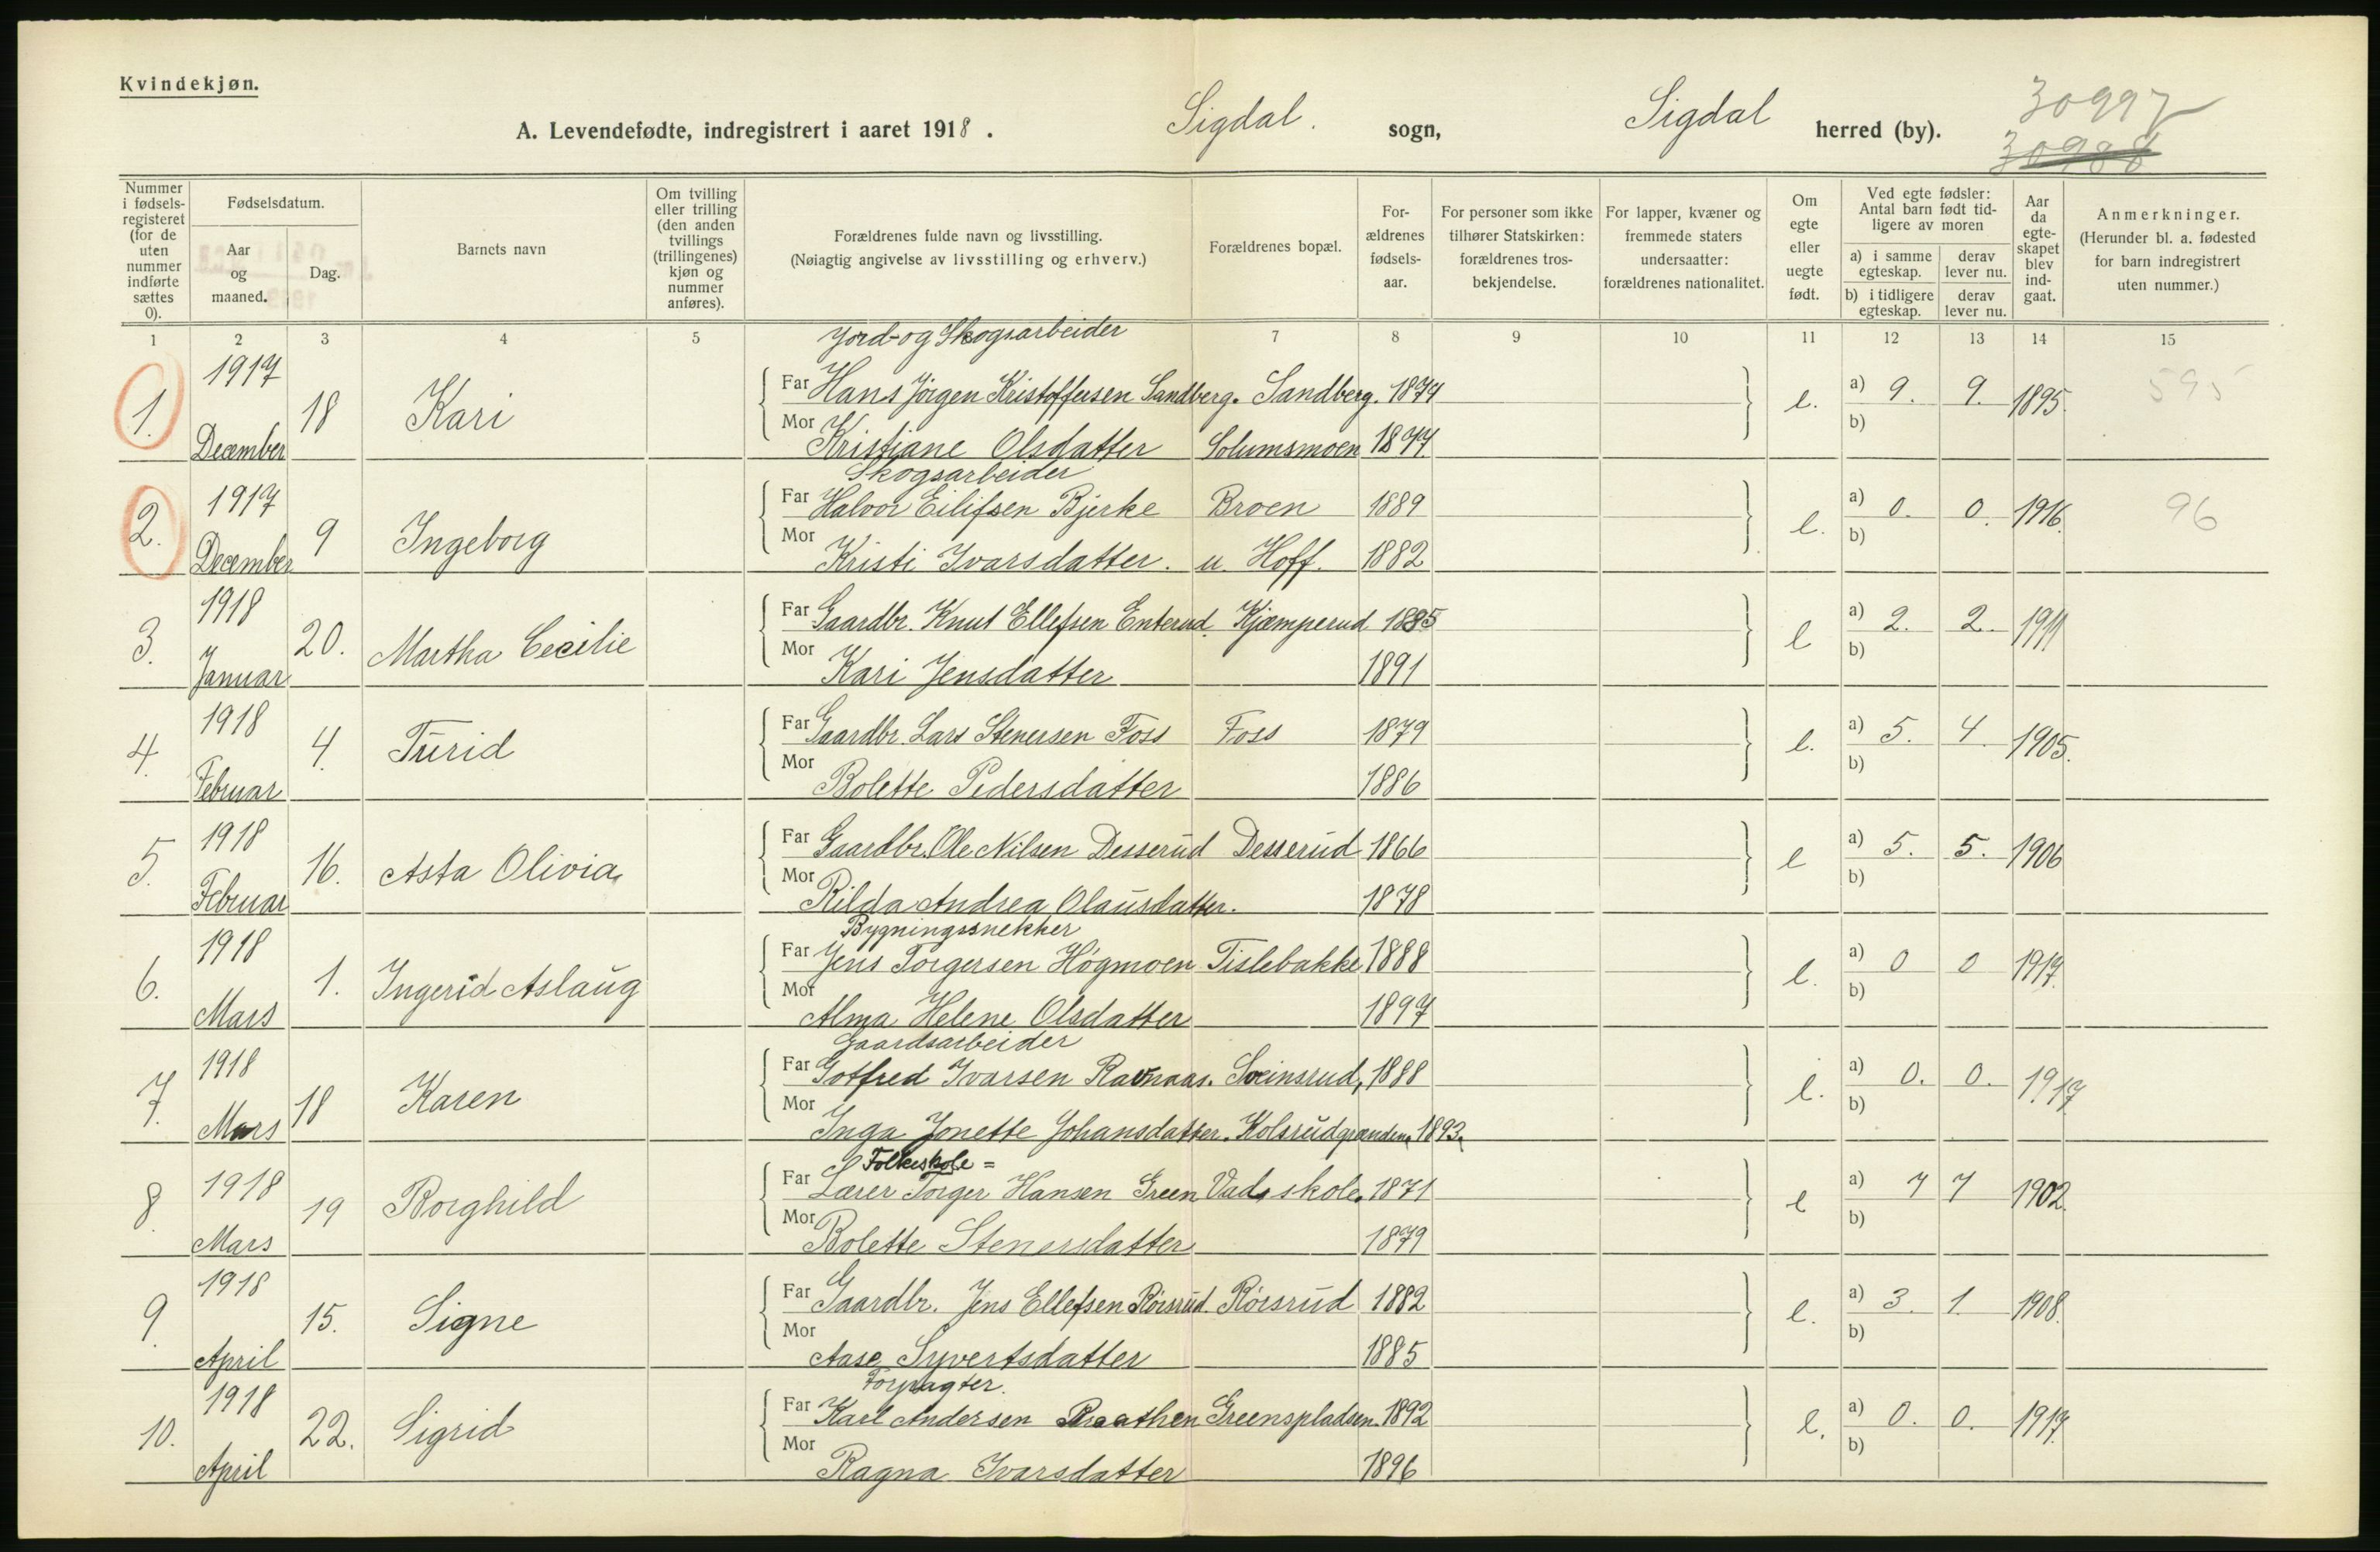 Kvindekjøn.
A. Levendefødte, indregistrert i aaret 1918. Sigdal. sogn, Sigdal herred (by). 30997
30988
Nummer i fødselsregisteret (for de uten nummer indførte sættes 0).
Fødselsdatum.
Aar og maaned.
Dag.
Barnets navn
Om tvilling eller trilling (den anden tvillings (trillingenes) kjøn og nummer anføres).
Forældrenes fulde navn og livsstilling.
(Nøiagtig angivelse av livsstilling og erhverv.)
Forældrenes bopæl.
Forældrenes fødselsaar.
For personer som ikke tilhører Statskirken: forældrenes trosbekjendelse.
For lapper, kvæner og fremmede staters undersaatter: forældrenes nationalitet.
Om egte eller uegte født.
Ved egte fødsler: Antal barn født tidligere av moren
a) i samme egteskap. derav lever nu.
b) i tidligere egteskap. derav lever nu.
Aar da egteskapet blev indgaat.
Anmerkninger.
(Herunder bl. a. fødested for barn indregistrert uten nummer.)
1 2 3 4 5 7 8 9 10 11 12 13 14 15
Jord- og Skogsarbeider
1. 1917 December 18 Kari
Far Hans Jörgen Kristoffersen Sandberg. Sandberg. 1874 e. a) 9. 9. 1895. 595
Mor Kristiane Olsdatter Solumsmoen 1877 b)
Skogsarbeider
2. 1917 December 9 Ingeborg
Far Halvor Eilifsen Bjerke Broen 1889 e. a) 0. 0. 1916. 96
Mor Kristi Ivarsdatter. u. Hoff. 1882 b)
3. 1918 Januar 20. Martha Cecilie
Far Gaardbr. Knut Ellefsen Enterud. Kjæmperud 1885 e a) 2. 2. 1911
Mor Kari Jensdatter 1891 b)
4. 1918 Februar 4. Turid
Far Gaardbr. Lars Stenersen Foss Foss 1879 e. a) 5. 4. 1905.
Mor Bolette Pedersdatter 1886 b)
5. 1918 Februar 16. Asta Olivia
Far Gaardbr. Ole Nilsen Desserud Desserud 1866 e a) 5. 5. 1906
Mor Rilda Andrea Olausdatter. 1878 b)
Bygningssnekker
6. 1918 Mars 1. Ingerid Aslaug
Far Jens Torgersen Högmoen Tislebakke 1888 e. a) 0 0 1917.
Mor Alma Helene Olsdatter 1897 b)
Gaardsarbeider
7. 1918 Mars 18 Karen
Far Gotfred Ivarsen Ravnaas. Sveinsrud, 1888 e. a) 0. 0. 1917
Mor Inga Jonette Johansdatter. Kolsrudgranden. 1893. b)
Folkeskole =
8. 1918 Mars 19 Borghild
Far Lærer Torger Hansen Green Vads skole. 1871 e a) 7 7 1902.
Mor Bolette Stenersdatter 1879 b)
9. 1918 April 15. Signe
Far Gaardbr. Jens Ellefsen Rörsrud. Rörsrud 1882 e. a) 3. 1. 1908.
Mor Aase Syvertsdatter 1885 b)
Forpagter.
10. 1918 April 22. Sigrid
Far Karl Andersen Braathen Greenspladsen. 1892 e. a) 0. 0. 1917.
Mor Ragna Ivarsdatter 1896 b)